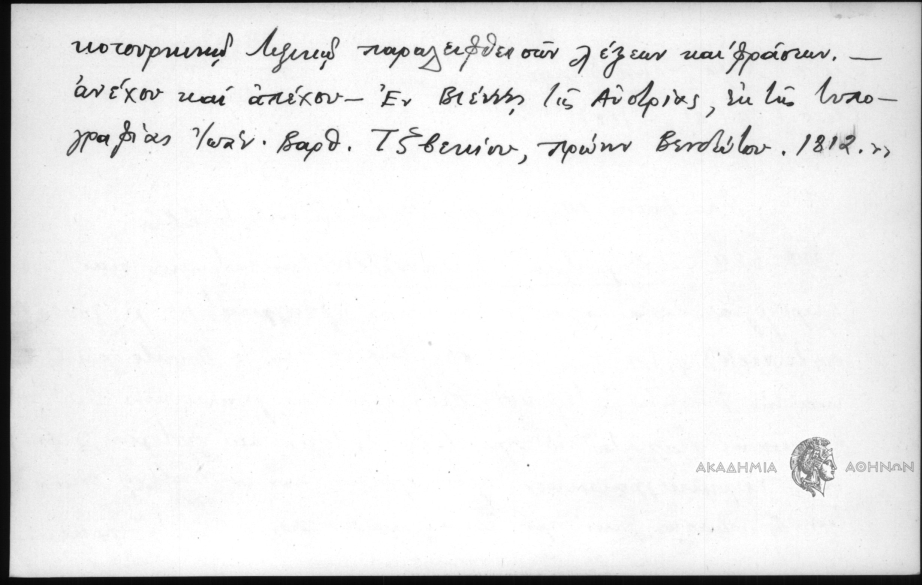 κοτουρκικῷ λεξικῷ παραλειφθεισῶν λέξεων καὶ φράσεων. —
ἀνέχου καὶ ἀπέχου — Ἐν Βιέννῃ τῆς Αὐστρίας, ἐκ τῆς τυπο-
γραφίας Ἰωάν. Βαρθ. Τζβεκίου, πρώην Βενδώτου. 1812.»
ΑΚΑΔΗΜΙΑ ΑΘΗΝΩΝ